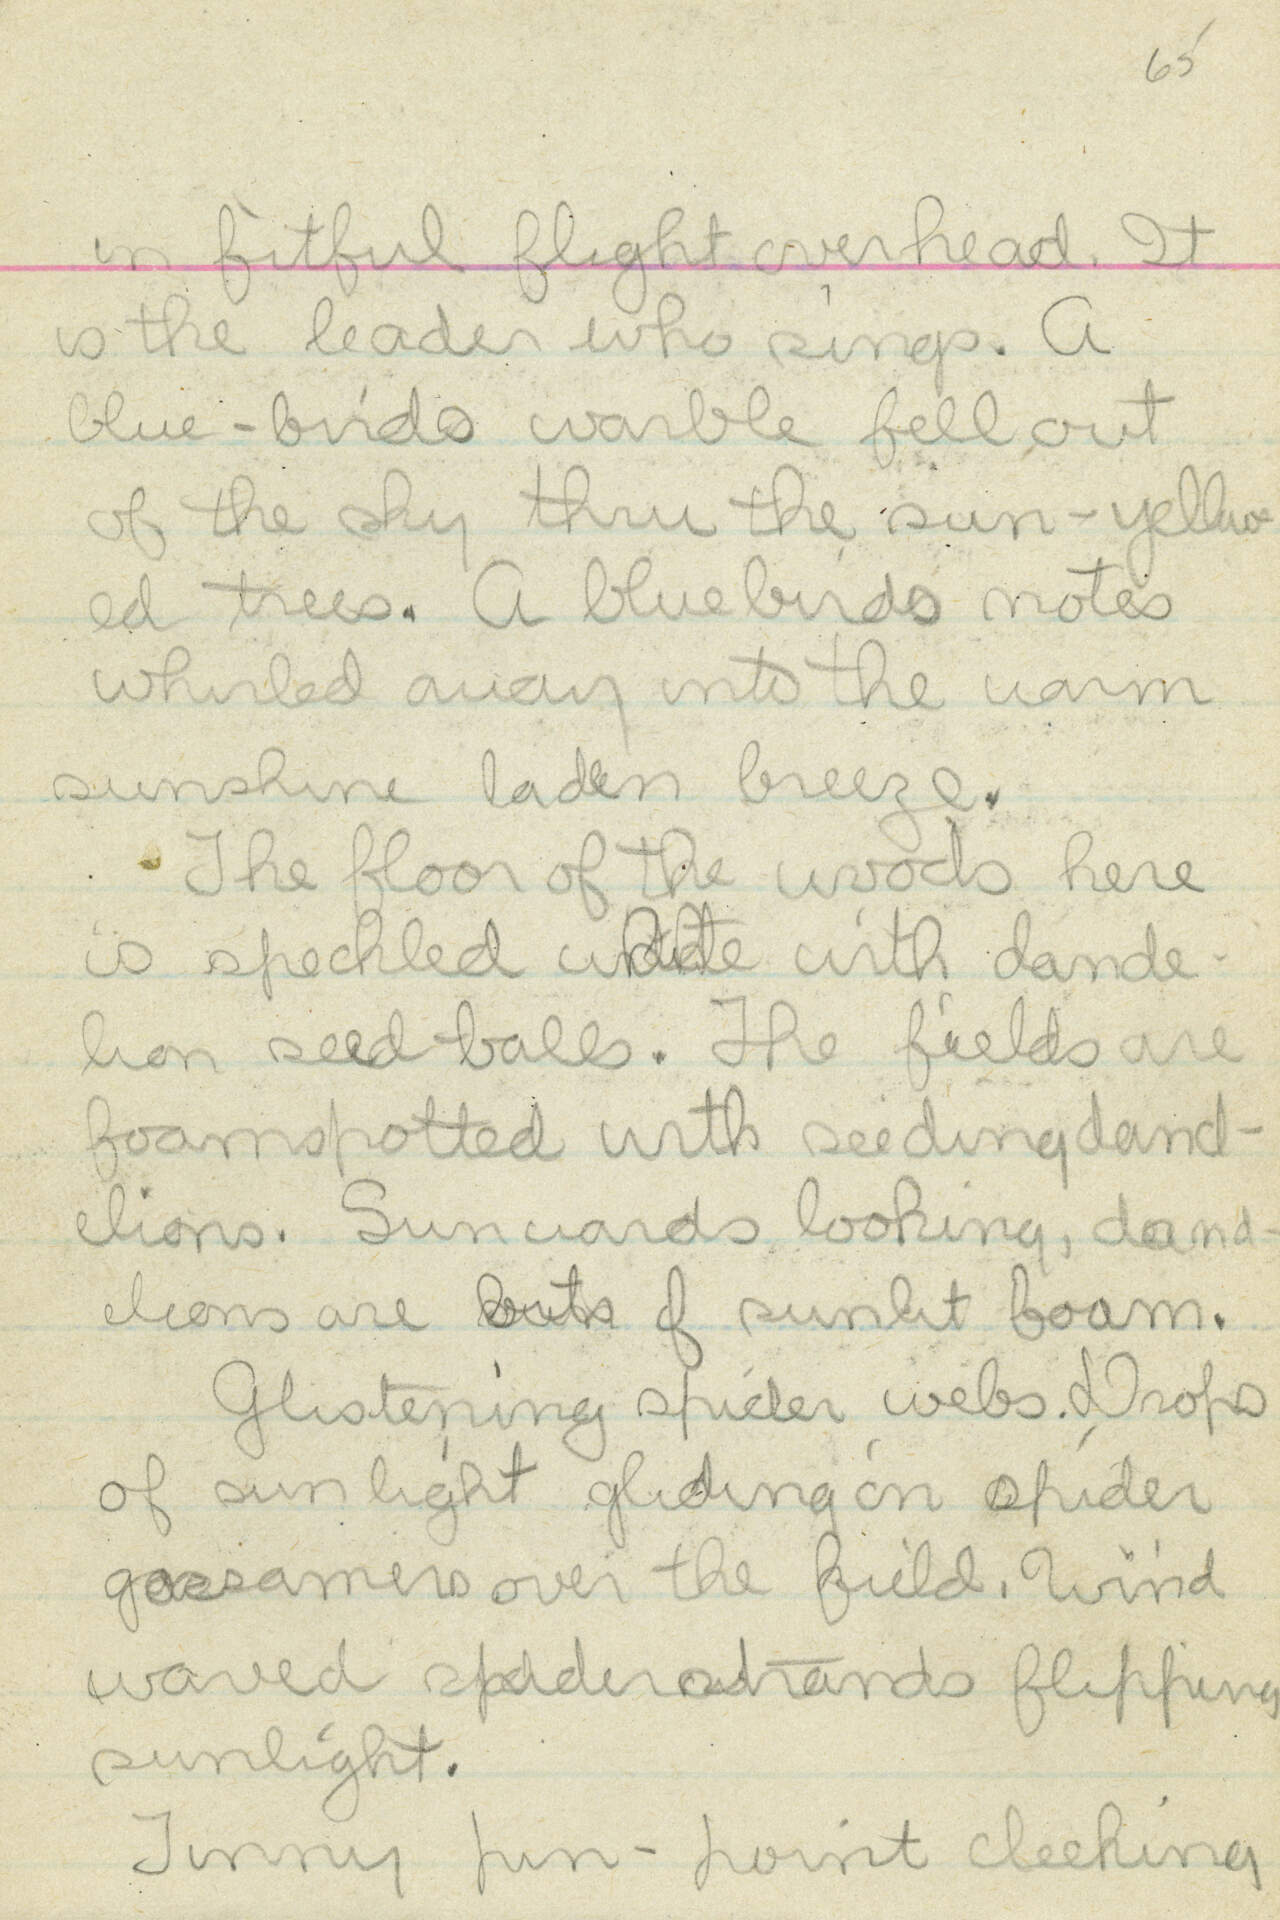 65
in fitful flight overhead. It
is the leader who sings. A
blue-birds warble fell out
of the sky thru the sun-yellow
ed trees. A bluebirds notes
whirled away into the warm
sunshine laden breeze.
The floor of the woods here
is speckled white with dande-
lion seed-balls. The fields are
foamspotted with seeding dand-
elions. Sunwards looking, dand-
elions are bits of sunlit foam.
Glistening spider webs. Drops
of sunlight gliding on spider
gossamers over the field. Wind
waved spider strands flipping
sunlight.
Tinny pin-point clicking